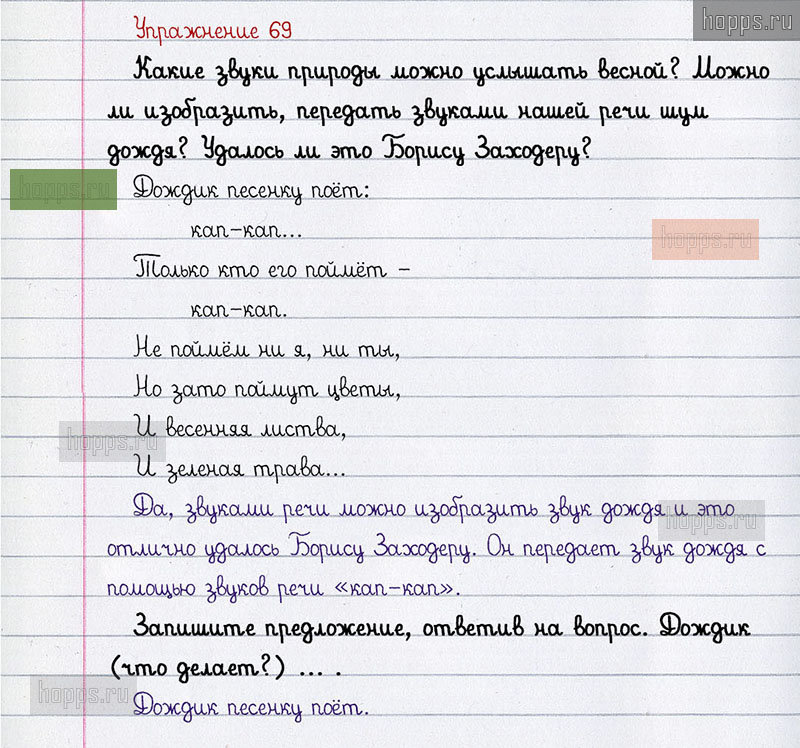 hopps.ru
Упражнение 69
Какие звуки природы можно услышать весной? Можно
ли изобразить, передать звуками нашей речи шум
дождя? Удалось ли это Борису Заходеру?
hopps.ru
Дождик песенку поёт:
кап-кап...
hopps.ru
Только кто его поймёт –
кап-кап.
Не поймём ни я, ни ты,
Но зато поймут цветы,
И весенняя листва,
hopps.ru
И зеленая трава...
Да, звуками речи можно изобразить звук дождя и это
hopps.ru
отлично удалось Борису Заходеру. Он передает звук дождя с
помощью звуков речи «кап-кап».
Запишите предложение, ответив на вопрос. Дождик
(что делает?) ... .
hopps.ru
Дождик песенку поёт.